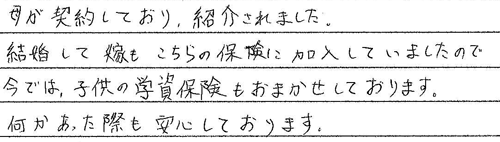 母が契約しており、紹介されました。
結婚して嫁もこちらの保険に加入していましたので
今では、子供の学資保険もおまかせしております。
何かあった際も安心しております。